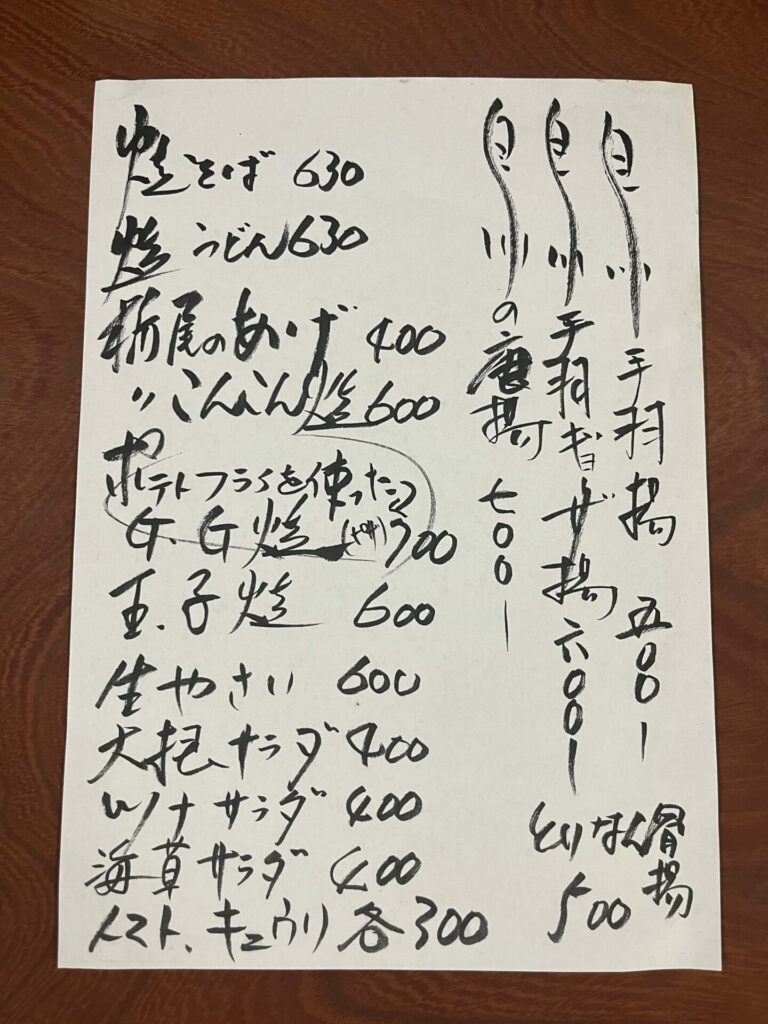 焼そば 630
焼うどん 630
栃尾のあげ 400
〃こんこん焼 600
ポテトフライを使った
G.G焼 700
玉子焼 600
生やさい 600
大根サラダ 400
ツナサラダ 400
海草サラダ 400
トマト、キュウリ 各300
白川手羽揚 五〇〇ー
白川手羽ギョーザ揚 六〇〇ー
白川の唐揚 七〇〇ー
とりなんこつ骨揚
500